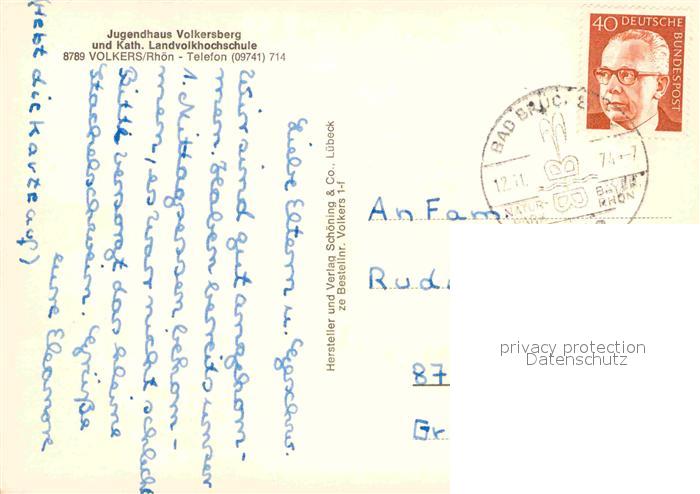 Jugendhaus Volkersberg
und Kath. Landvolkhochschule
8789 VOLKERS/Rhön - Telefon (09741) 714
Liebe Eltern u. Geschw.
Wir sind gut angekom-
men. Haben bereits unser
1. Mittagessen bekom-
men, es war nicht schlecht
Bitte versorgt das kleine
Stachelschwein. Grüße
eure Eleonore
(Hebt die Karte auf)
Hersteller und Verlag Schöning & Co., Lübeck
ze Bestellnr. Volkers 1-f
40 DEUTSCHE BUNDESPOST
BAD BRÜC
12.11. 74-7
NATUR-
BAYER.
RHÖN
An Fam
Rud
87
Gr
privacy protection
Datenschutz